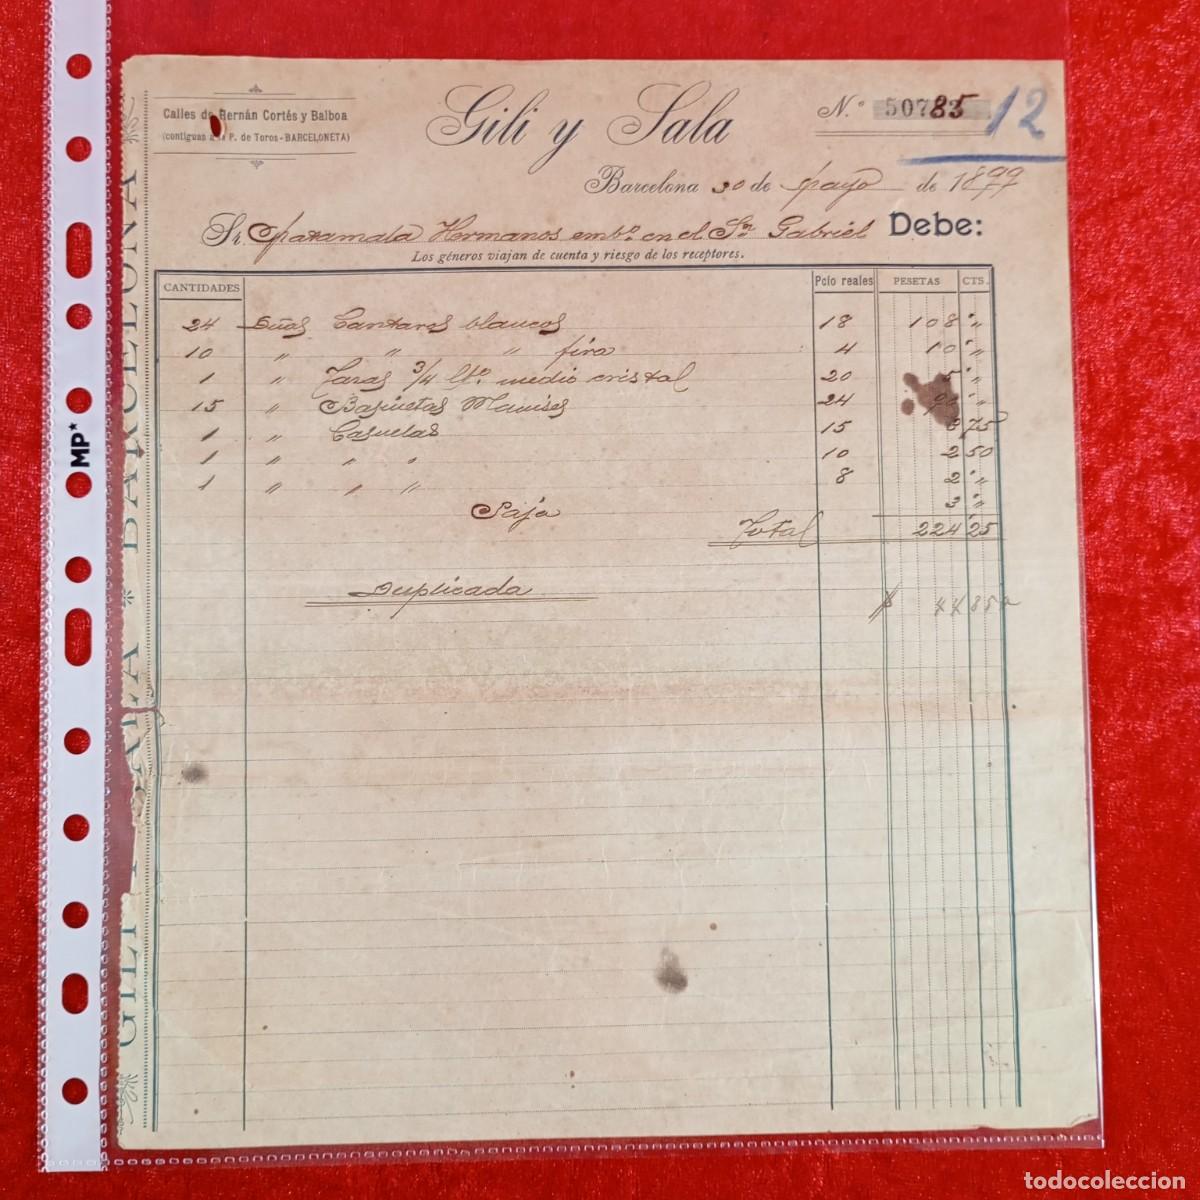 Calles de Hernán Cortés y Balboa
(contiguas a la P. de Toros - BARCELONETA)
Gili y Sala
N.º 50785
12
Barcelona 30 de Mayo de 1899
Sr. Matamala Hermanos embº en el Sn Gabriel Debe:
Los géneros viajan de cuenta y riesgo de los receptores.
CANTIDADES Pcio reales PESETAS CTS.
24 Dnas Cantaros blancos 18 108 "
10 " " " fira 4 10 "
1 " Jaras 3/4 medio cristal 20 5 "
15 " Manises 24 90 "
1 " Casuelas 15 3 75
1 " " " 10 2 50
1 " " " 8 2 "
Paja 3 "
Total 224 25
Duplicada
$ 44 85
GILI Y SALA * BARCELONA
MP*
todocoleccion